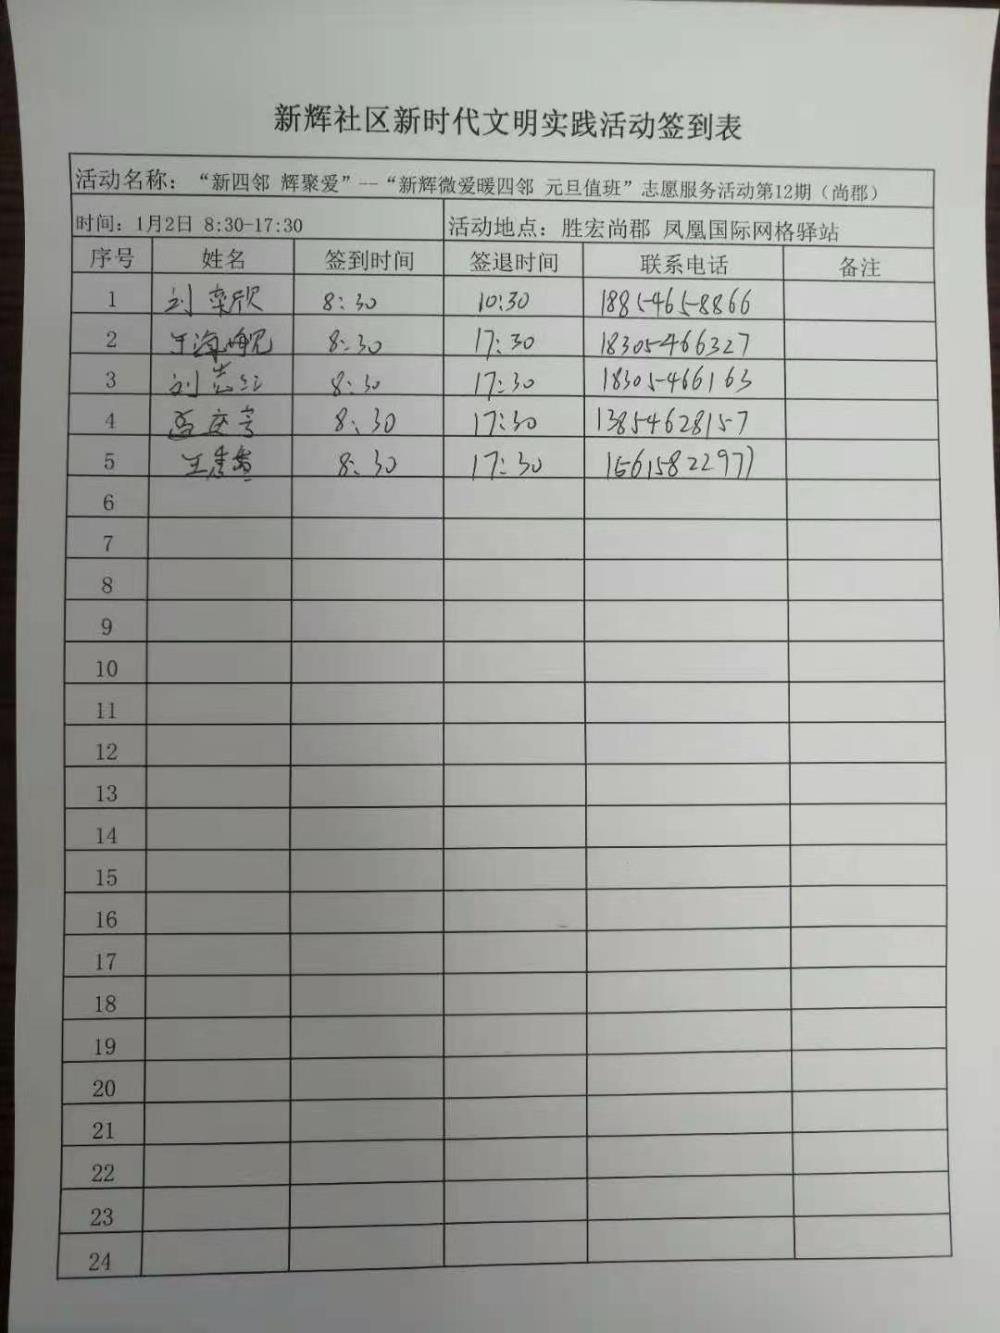 新辉社区新时代文明实践活动签到表
活动名称：“新四邻 辉聚爱”--“新辉微爱暖四邻 元旦值班”志愿服务活动第12期（尚郡）
时间：1月2日 8:30-17:30 活动地点：胜宏尚郡 凤凰国际网格驿站
序号 姓名 签到时间 签退时间 联系电话 备注
1 刘 8:30 10:30 18854658866
2 8:30 17:30 18305466327
3 刘志红 8:30 17:30 18305466163
4 8:30 17:30 13854628157
5 王 8:30 17:30 15615822977
6
7
8
9
10
11
12
13
14
15
16
17
18
19
20
21
22
23
24